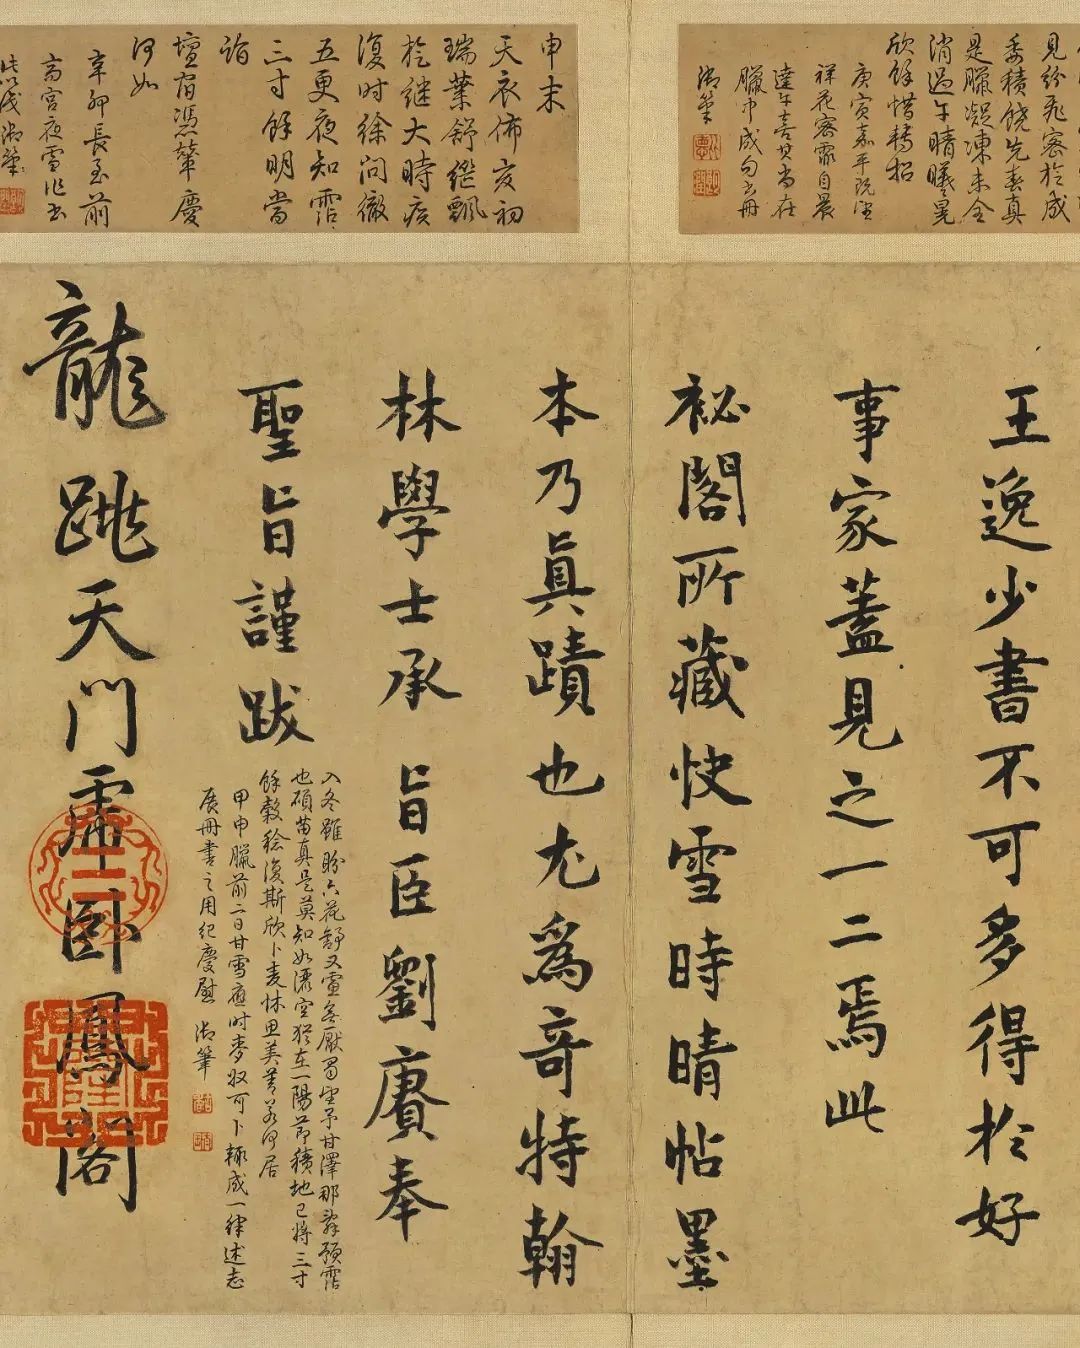 見紛飛密於成
委積饒先春真
是臘凝凍未全
消過午晴曦晃
欣餘惜轉招
庚寅嘉平既望
祥花密霏自晨
達午喜其尚在
臘中成句書冊
御筆
申末
天衣佈亥初
瑞葉舒繼飄
於繼大時疾
復時徐問徹
五更夜知霑
三寸餘明當
詣
壇宿憑輦慶
何如
辛卯長至前
齋宮夜雪作書
御筆
王逸少書不可多得於好
事家蓋見之一二焉此
祕閣所藏快雪時晴帖墨
本乃真蹟也尤為奇特翰
林學士承旨臣劉賡奉
聖旨謹跋
入冬雖盼六花舒又慮無厭蜀望予甘澤那辭預霑
也碩苗真是莫知如濡空猶在一陽節積地已將三寸
餘穀稔復斯欣卜麥怵思美若何居
甲申臘前二日甘雪應時麥收可卜輒成一律述志
展冊書之用紀慶慰 御筆
龍跳天門虎臥鳳閣
乾隆